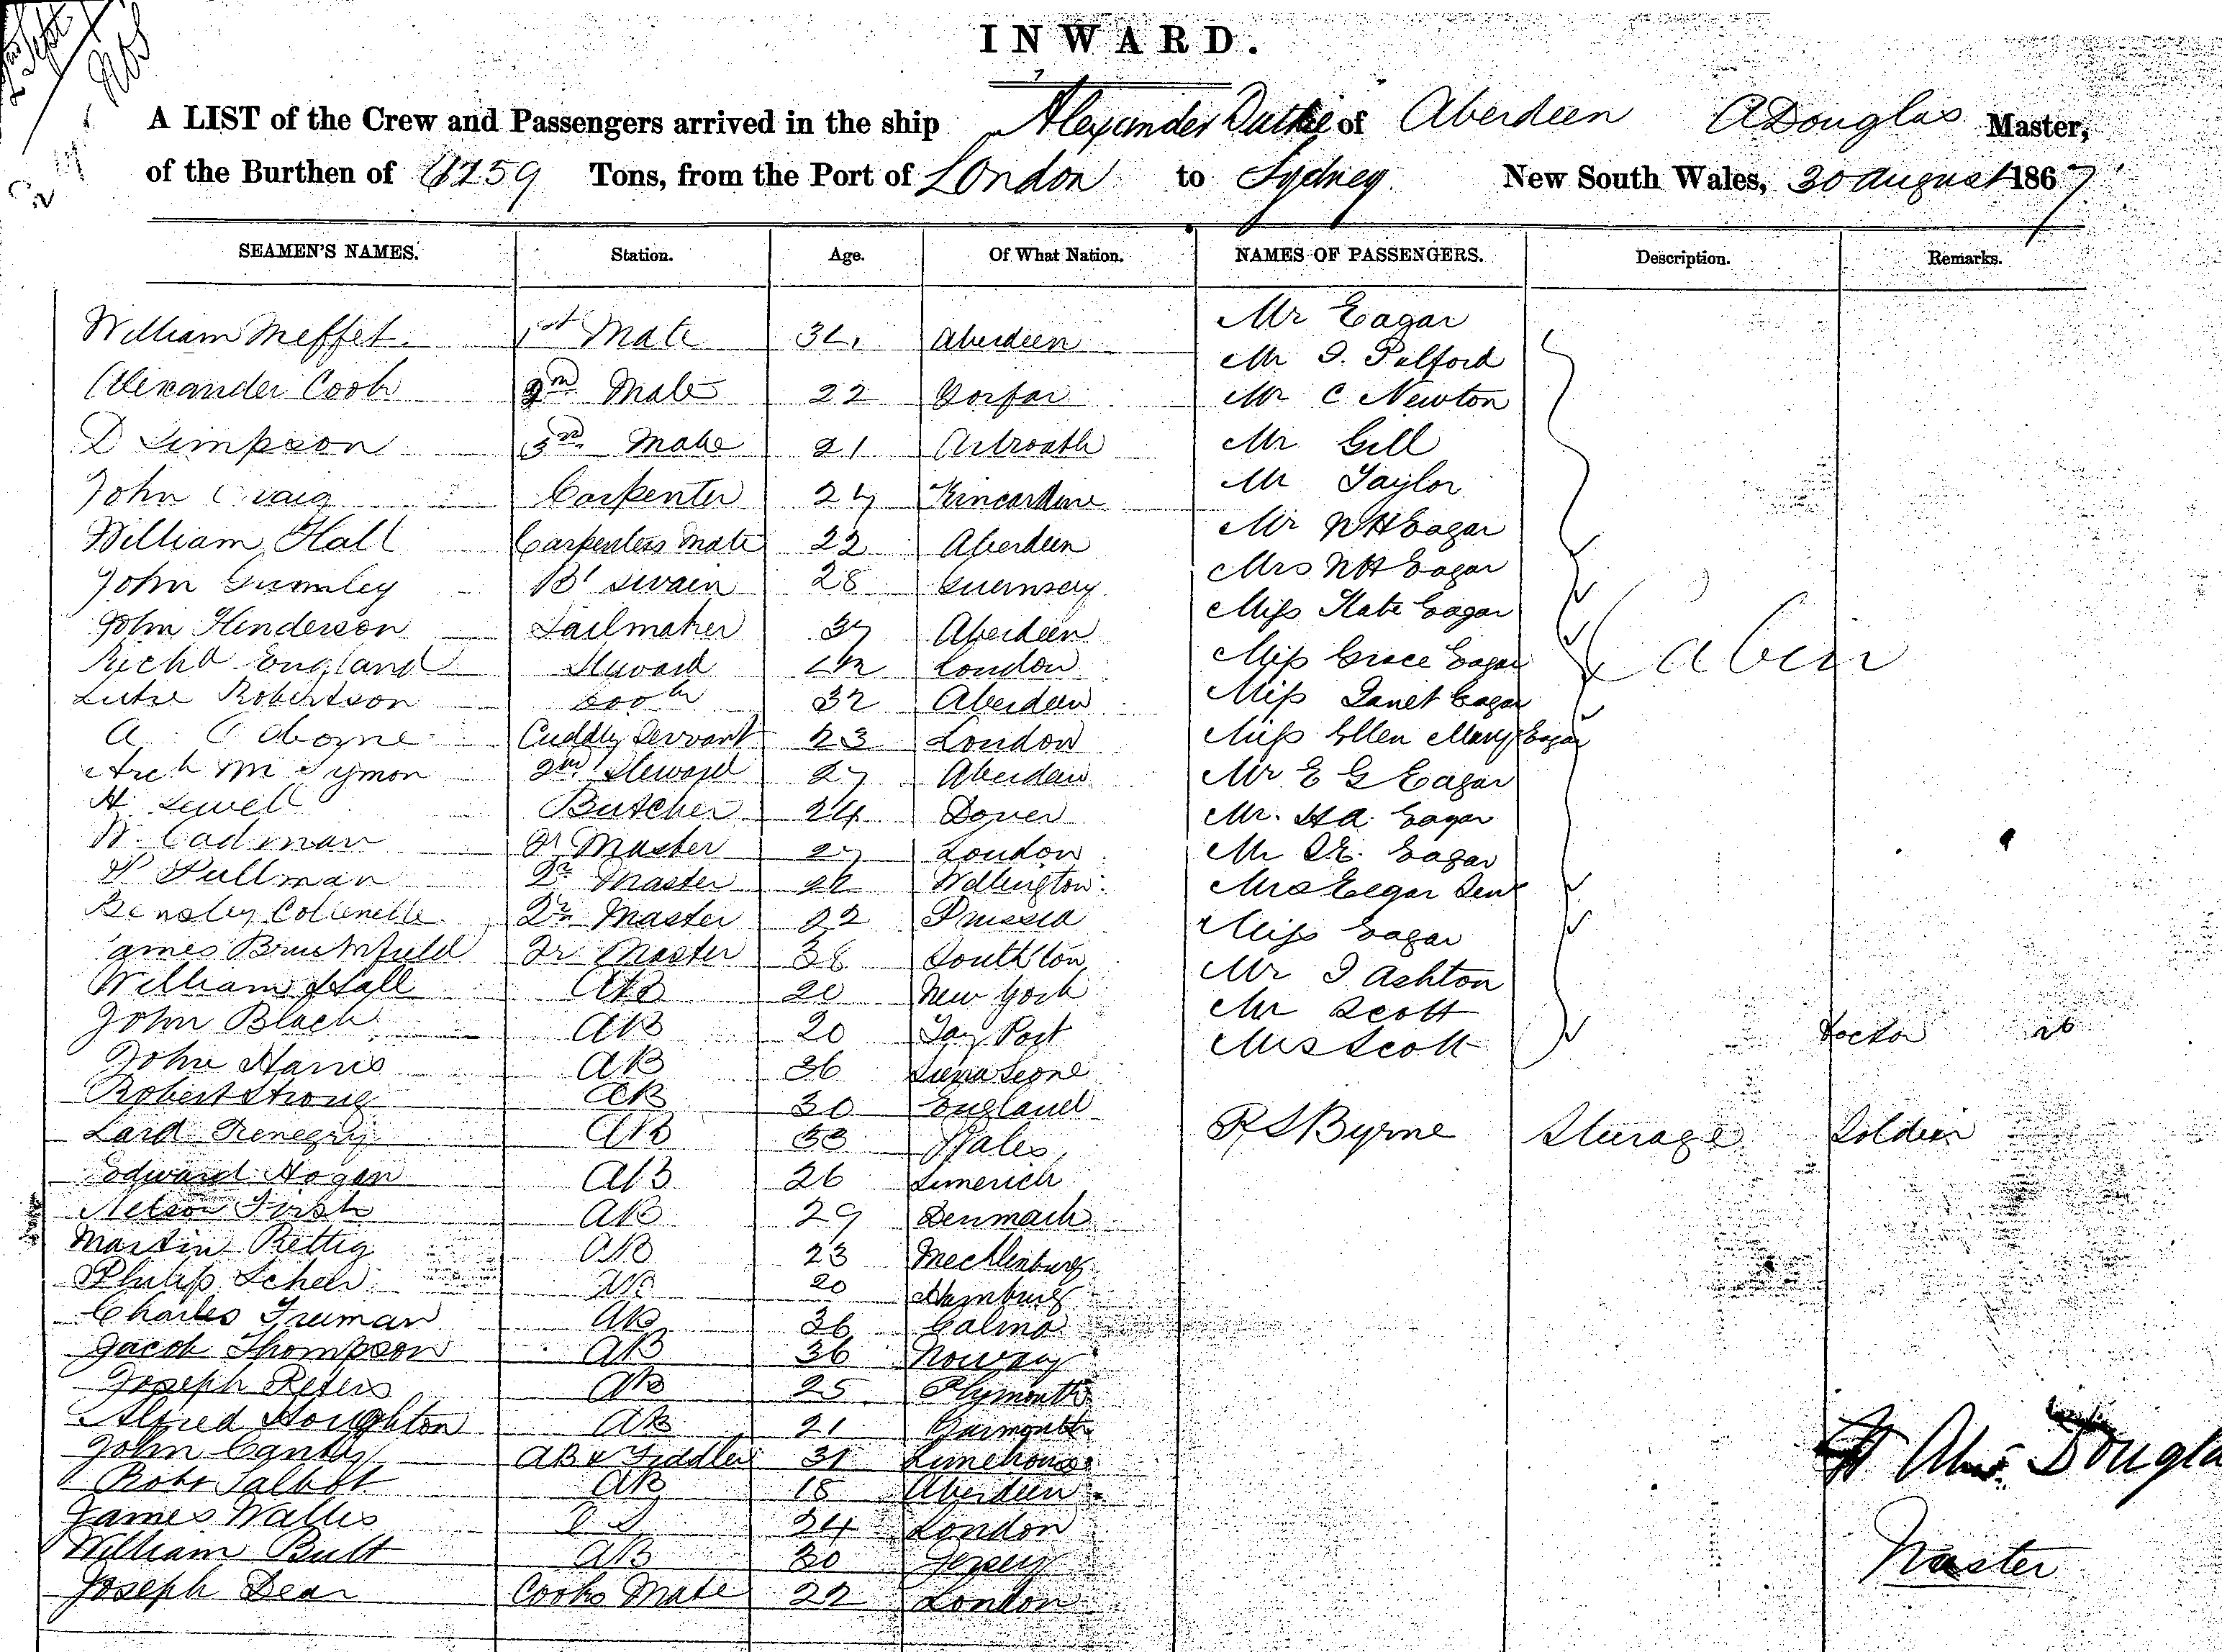 INWARD.
A LIST of the Crew and Passengers arrived in the ship Alexander Duthie of Aberdeen A Douglas Master,
of the Burthen of 1159 Tons, from the Port of London to Sydney New South Wales, 30 August 1867
SEAMEN'S NAMES. Station. Age. Of What Nation. NAMES OF PASSENGERS. Description. Remarks.
Mr Eagar
William Meffet 1st Mate Aberdeen
Mr Pulford
Alexander Cook 2nd Mate 22 Forfar Mr C Newton
D Simpson 3rd Mate 21 Arbroath Mr Gill
Mr Taylor
John Craig Carpenter 27 Kincardine
Mr W H Eagar
William Hall Carpenters Mate 22 Aberdeen
Mrs W H Eagar
John Gumley Bt swain 28 Guernsey
Miss Kate Eagar
John Henderson Sailmaker 37 Aberdeen
Richd England Steward London Miss Grace Eagar Cabin
Robertson Cook 32 Aberdeen Miss Janet Eagar
A Osborne Cuddy Servant 23 London Miss Ellen Mary Eagar
Arch McSymon 2nd Steward 27 Aberdeen Mr E G Eagar
H Sewell Butcher 24 Dover Mr. H A. Eagar
W. Cadman Qr Master 27 London Mr Eagar
Pullman Qr Master Wellington Mrs Eagar Senr
Collenette Qr Master 22 Prussia Miss Eagar
James Qr Master 36 Southton Mr J Ashton
William Hall AB 20 New York Mr Scott
John Black AB 20 Tay Port Mrs Scott Doctor
John Harris AB 36 Sierra Leone
Robert Strong AB 30 England
AB 33 Wales R S Byrne Sturage Soldier
Edward Hogan AB 26 Limerick
AB 29 Denmark
Martin Rettig AB 23 Mecklenburg
Philip Scheer AB 20 Hamburg
Charles Truman AB 36
Jacob Thompson AB 36 Norway
Joseph Peters AB 25 Plymouth
Alfred Houghton AB 21
John AB & Fiddler 31 Limehouse
Alexr Douglas
Robt Talbot AB 18 Aberdeen
James Wallis 24 London
William Butt AB 30 Jersey
Master
Joseph Dean Cooks Mate 22 London